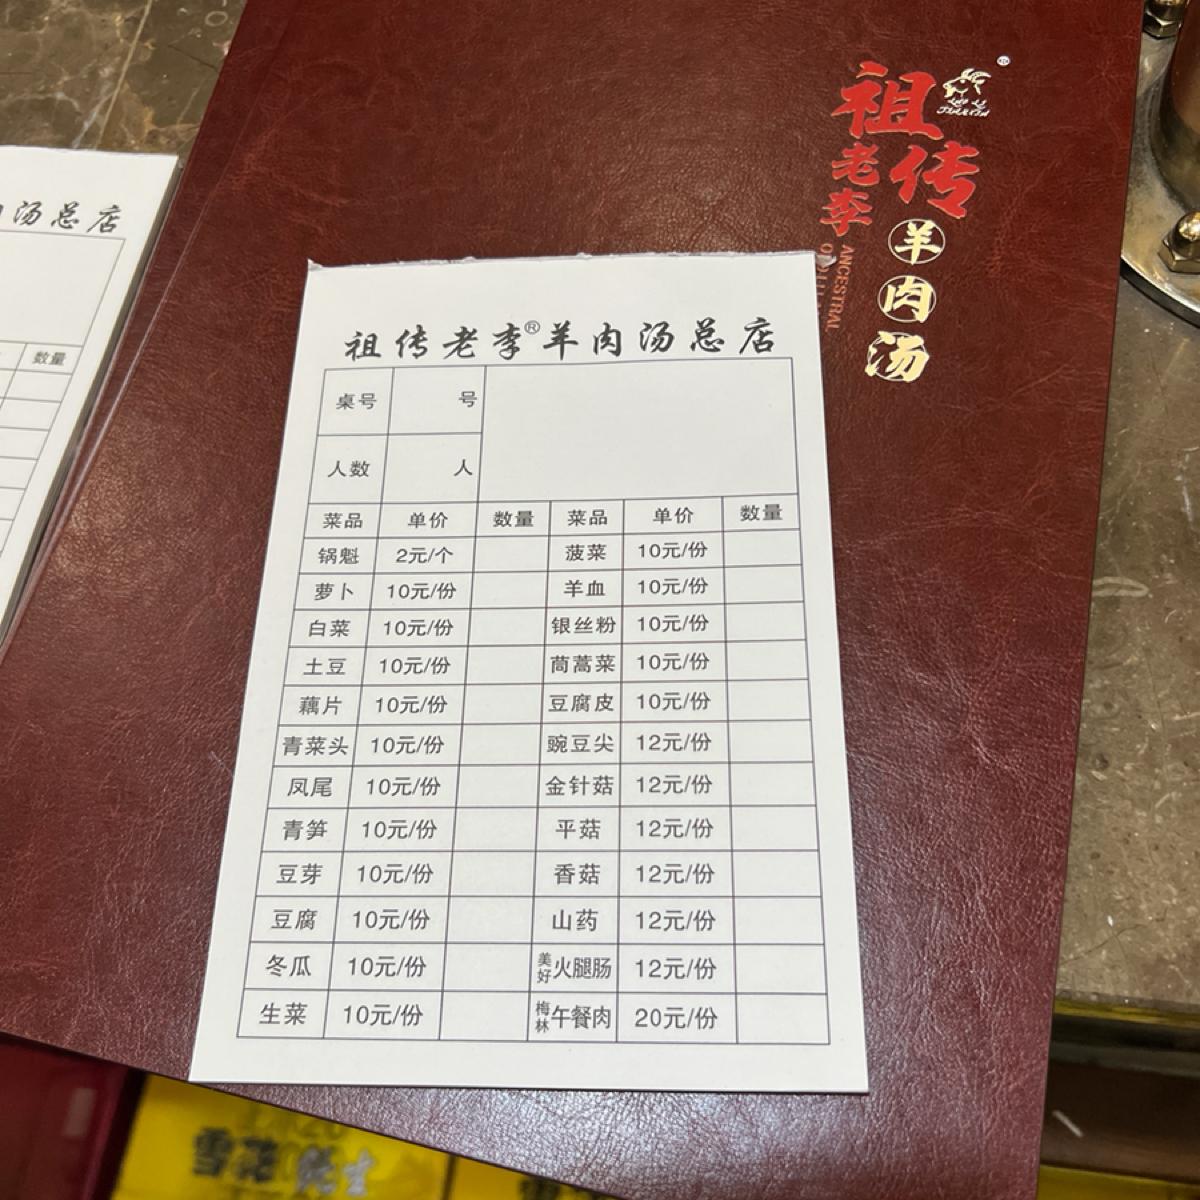 祖传
老李
羊肉汤
ANCESTRAL
汤总店
数量
祖传老李®羊肉汤总店
桌号 号
人数 人
菜品 单价 数量 菜品 单价 数量
锅魁 2元/个 菠菜 10元/份
萝卜 10元/份 羊血 10元/份
白菜 10元/份 银丝粉 10元/份
土豆 10元/份 茼蒿菜 10元/份
藕片 10元/份 豆腐皮 10元/份
青菜头 10元/份 豌豆尖 12元/份
凤尾 10元/份 金针菇 12元/份
青笋 10元/份 平菇 12元/份
豆芽 10元/份 香菇 12元/份
豆腐 10元/份 山药 12元/份
冬瓜 10元/份 美好火腿肠 12元/份
生菜 10元/份 梅林午餐肉 20元/份